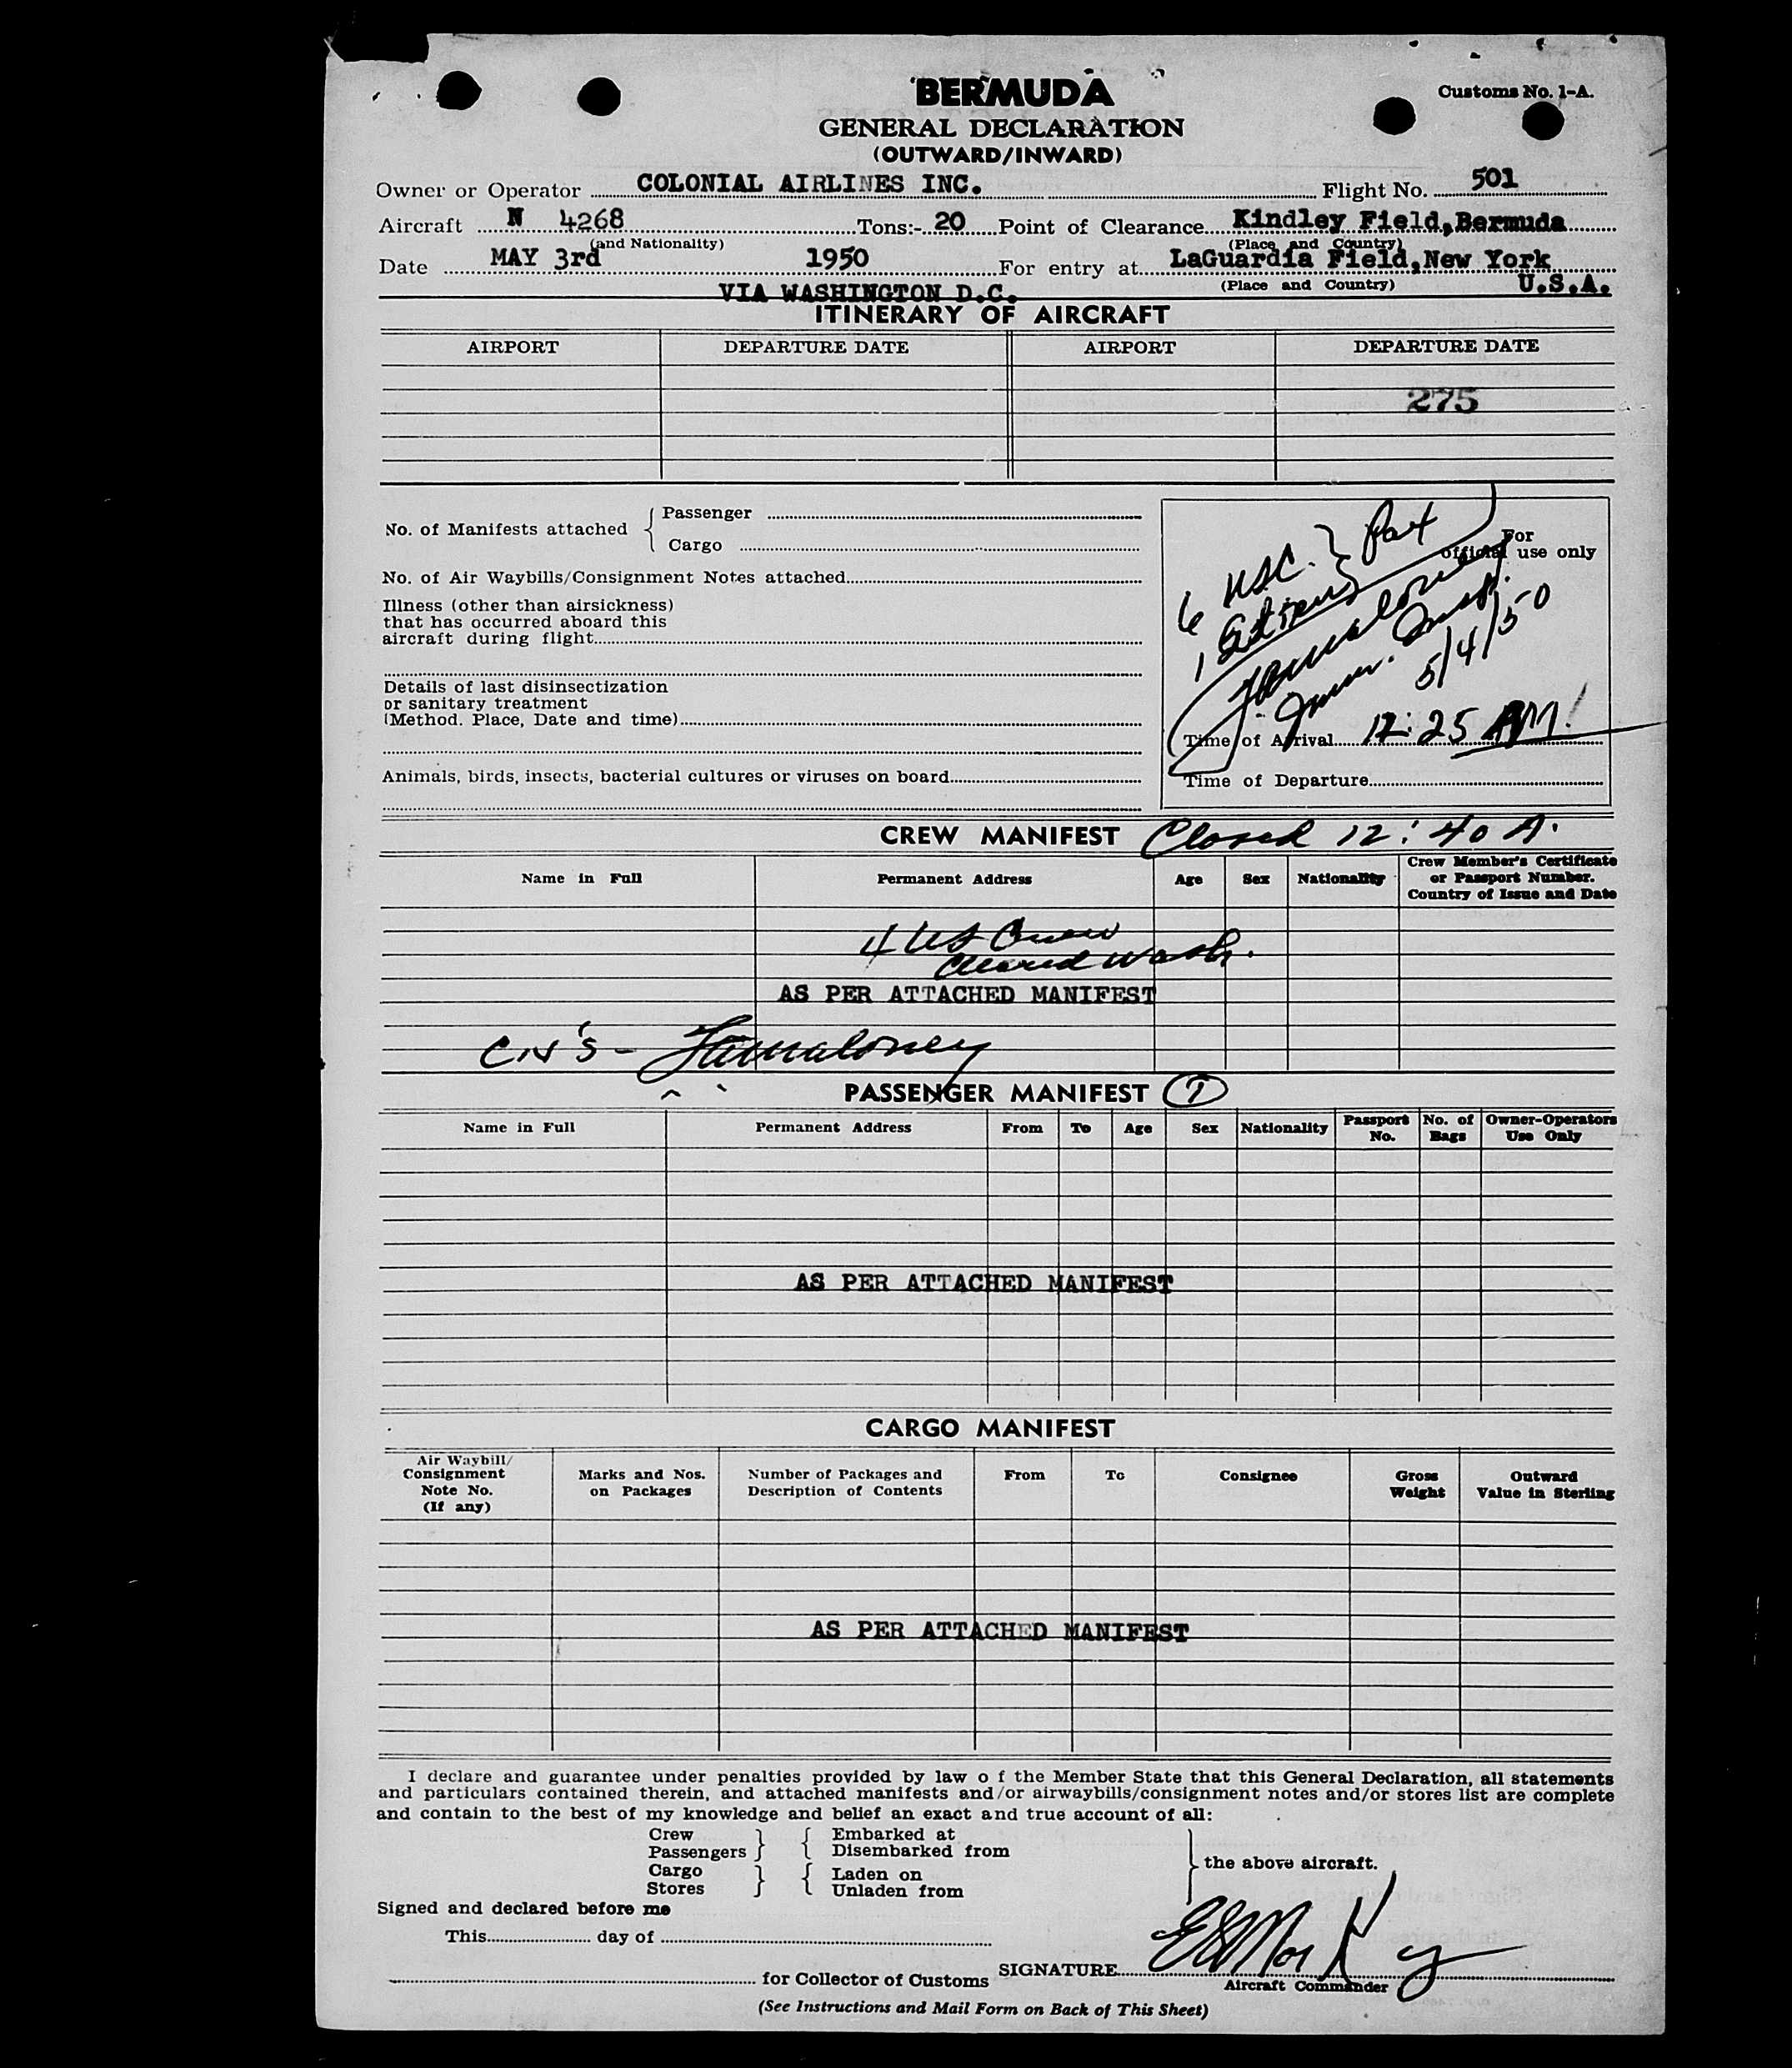 BERMUDA
Customs No. 1-A.
GENERAL DECLARATION
(OUTWARD/INWARD)
Owner or Operator COLONIAL AIRLINES INC. Flight No. 501
Aircraft N 4268 Tons:- 20 Point of Clearance Kindley Field, Bermuda
(and Nationality) (Place and Country)
Date MAY 3rd 1950 For entry at LaGuardia Field, New York
VIA WASHINGTON D.C. (Place and Country) U.S.A.
ITINERARY OF AIRCRAFT
AIRPORT DEPARTURE DATE AIRPORT DEPARTURE DATE
275
No. of Manifests attached { Passenger
Cargo
No. of Air Waybills/Consignment Notes attached
Illness (other than airsickness)
that has occurred aboard this
aircraft during flight
Details of last disinsectization
or sanitary treatment
(Method. Place, Date and time)
Animals, birds, insects, bacterial cultures or viruses on board
For
official use only
6 USC. } Pax
1
5/4/50
Time of Arrival 12:25 AM
Time of Departure
CREW MANIFEST Closed 12:40 A.
Name in Full Permanent Address Age Sex Nationality Crew Member's Certificate
or Passport Number.
Country of Issue and Date
4 US Crew
Cleared Wash.
AS PER ATTACHED MANIFEST
PASSENGER MANIFEST
Name in Full Permanent Address From To Age Sex Nationality Passport No. No. of Bags Owner-Operators Use Only
AS PER ATTACHED MANIFEST
CARGO MANIFEST
Air Waybill/
Consignment
Note No.
(If any)
Marks and Nos.
on Packages
Number of Packages and
Description of Contents
From To Consignee
Gross
Weight
Outward
Value in Sterling
AS PER ATTACHED MANIFEST
I declare and guarantee under penalties provided by law o f the Member State that this General Declaration, all statements
and particulars contained therein, and attached manifests and/or airwaybills/consignment notes and/or stores list are complete
and contain to the best of my knowledge and belief an exact and true account of all:
Crew
Passengers } { Embarked at
Disembarked from
Cargo
Stores } { Laden on
Unladen from
} the above aircraft.
Signed and declared before me
This day of
for Collector of Customs SIGNATURE
Aircraft Commander
(See Instructions and Mail Form on Back of This Sheet)